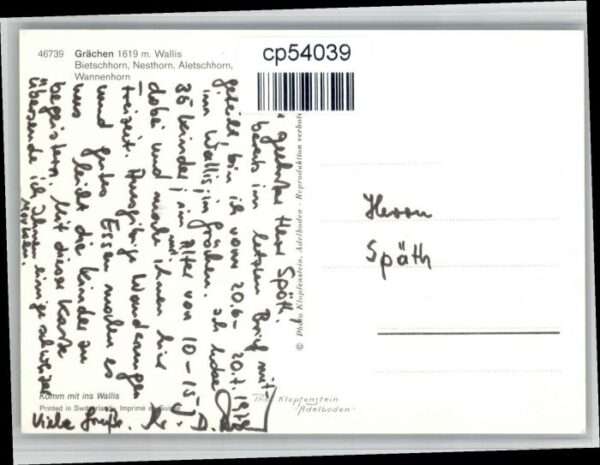 46739 Grächen 1619 m. Wallis
Bietschhorn, Nesthorn, Aletschhorn,
Wannenhorn
cp54039
geehrter Herr Späth!
bereits im letzten Brief mit-
geteilt, bin ich vom 20.6.- 20.7.
im Wallis, in Grächen. Ich habe
35 Kinder im Alter von 10-15 J.
mit
dabei und mache ihnen hier
Freizeit. Ausgiebige Wanderungen
und gutes Essen machen es
uns leicht die Kinder zu
begeistern. Mit dieser Karte
übersende ich Ihnen einige schweizer
Marken.
Viele Grüße
© Photo Klopfenstein, Adelboden - Reproduktion verboten
Herrn
Späth
Komm mit ins Wallis
Printed in Switzerland, Imprimé en Suisse
Photo Klopfenstein
Adelboden